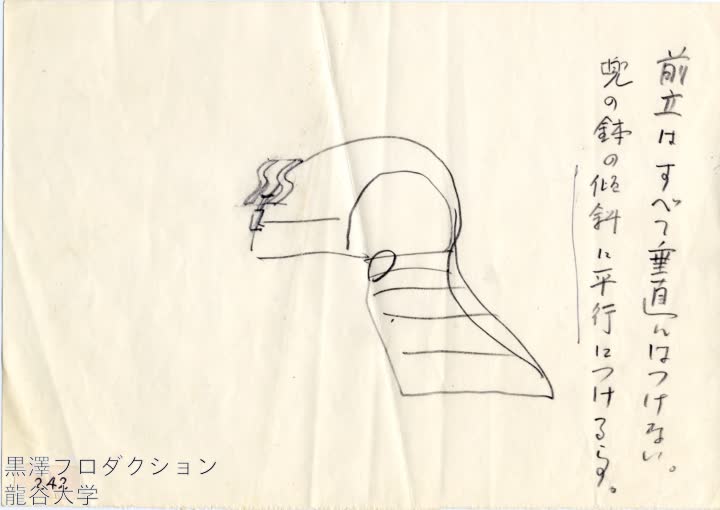 前立はすべて垂直にはつけない。
兜の鉢の傾斜に平行につける
黒澤プロダクション
龍谷大学
242